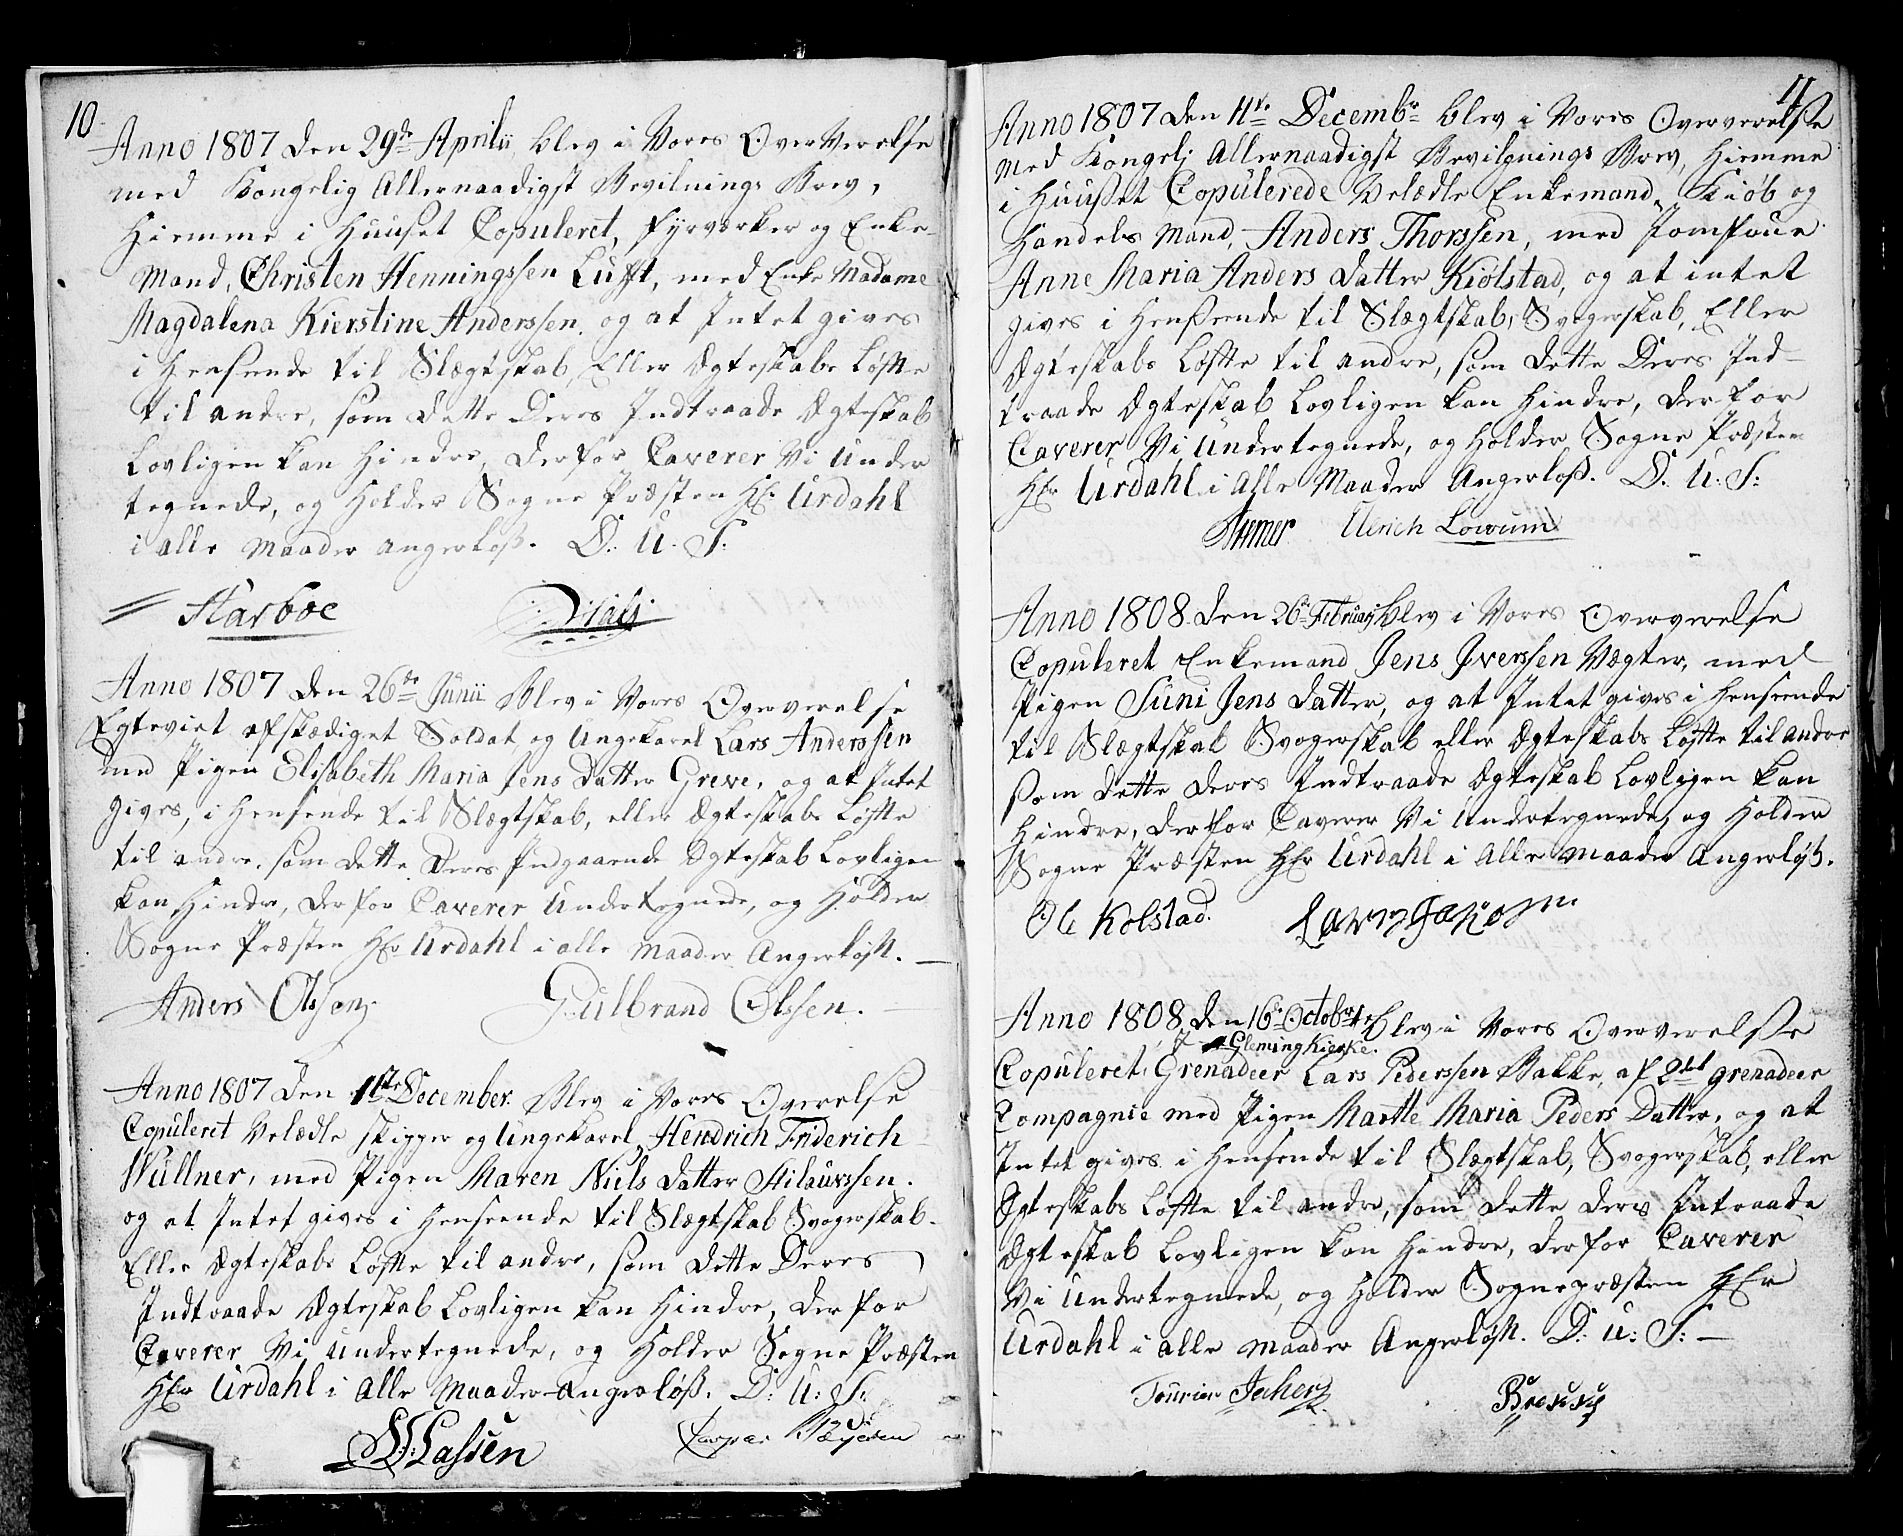 10
Anno 1807 den 29de Aprilii blev i Vores Oververelse
med Kongelig Allernaadigst Bevilnings Brev,
Hiemme i Huuset Copuleret, Fyrværker og Enke-
Mand, Christen Henningssen Lufft, med Enke Madame
Magdalena Kierstine Anderssen, og at Intet gives
i Hensende til Slægtskab, Eller Ægteskabs Løfte
til andre, som dette Deres Indtraade Ægteskab
Lovligen kan Hindre, Derfor Caverer Vi Under
tegnede, og Holder Sogne Præsten Hr Urdahl
i alle Maader angerløs. D. U. S:
Harboe
Anno 1807 den 26de Junii Blev i Vores Oververelse
Egteviet afskædiget Soldat og Ungekarel Lars Anderssen
med Pigen Elisabeth Maria Jens Datter Greve, og at Intet
gives, i Hensende til Slægtskab, eller Ægteskabs Løfte
til andre, som dette Deres Indgaaende Ægteskab Lovligen
kan Hindre, derfor Caverer Undertegnede, og Holder
Sogne Præsten Hr Urdahl i alle Maader Angerløss. —
Anders Olssen Gulbrand Olssen.
Anno 1807 den 1ste December Blev i Vores Overelse
Copuleret Velædle Skipper og Ungekarel Hendrich Friderich
Wullner, med Pigen Maren Niels Datter Hilaurssen.
og at Intet gives i Henseende til Slægtskab Svogerskab.
Eller Ægteskabs Løfte til andre, som dette Deres
Indtraade Ægteskab Lovligen kan Hindre, Derfor
Caverer Vi undertegnede, og Holder Sogne Præsten
Hr Urdahl i alle Maader angerløs. D: U: S:
Lassen
11
Anno 1807 den 11te Decembr blev i Vores Oververelse
med Kongelj Allernaadigst Bevilgnings Brev, Hiemme
i Huuset Copulerede Velædle Enkemand, Kiøb og
Handels Mand, Anders Thorssen, med Jomfrue
Anne Maria Anders Datter Kiølstad, og at intet
gives i Henseende til Slægtskab, Svogerskab, Eller
Ægteskabs Løfte til andre, som dette Deres Ind-
traade Ægteskab Lovligen kan Hindre, Derfor
Caverer Vi Undertegnede, og Holder Sogne Præsten
Hr Urdahl i Alle Maader Angerløs. D. U: S:
Ulrich
Anno 1808 den 26de Februarj blev i Vores Oververelse
Copuleret Enkemand Jens Jverssen Vægter, med
Pigen Siuni Jens Datter, og at Intet gives i Henseende
til Slægtskab Svogerskab eller Ægteskabs Løfte til andre
som dette deres Indtraade Ægteskab Lovligen kan
Hindre, derfor Caverer Vi Undertegnede, og Holder
Sogne Præsten Hr Urdahl i Alle maader Angerløs.
Ole Kolstad.
Anno 1808 den 16de Octobr blev i Vores Oververelse
I Glemingkierke.
Copuleret, Grenadeer Lars Pederssen Bakke, af 2det grenadeer
Compagnie med Pigen Marthe Maria Peders Datter, og at
Intet gives i Hensende til Slægtskab, Svogerskab, eller
Ægteskabs Løfte til andre, som dette deres Intraade
Ægteskab Lovligen kan Hindre, derfor Caverer
Vi undertegnede, og Holder Sognepræsten Hr
Urdahl i alle maader Angerløss. D: U: S: —